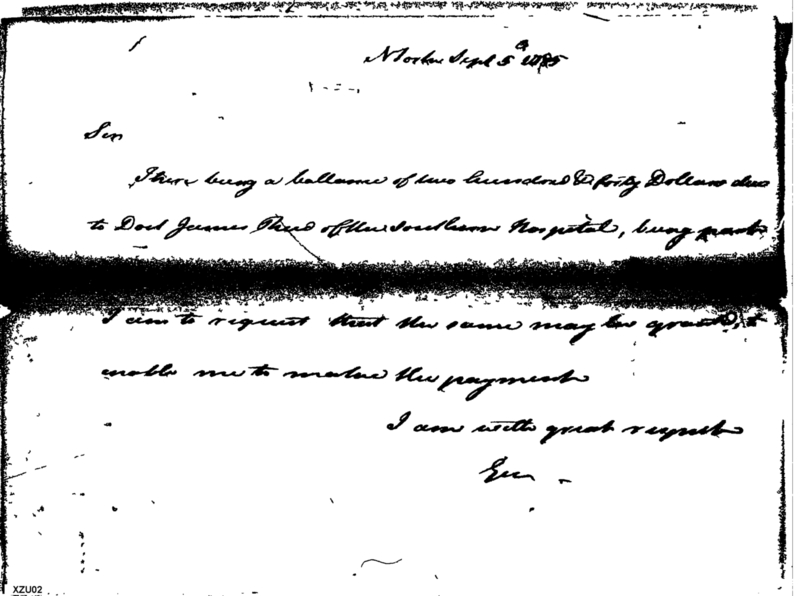 N York Sept 5th 1785
Sir
There being a ballance of two hundred & forty Dollars due
to Doct James of the Southern Hospital, being part
I am to request that the same may be granted, to
enable me to make the payment
I am with great respect
XZU02